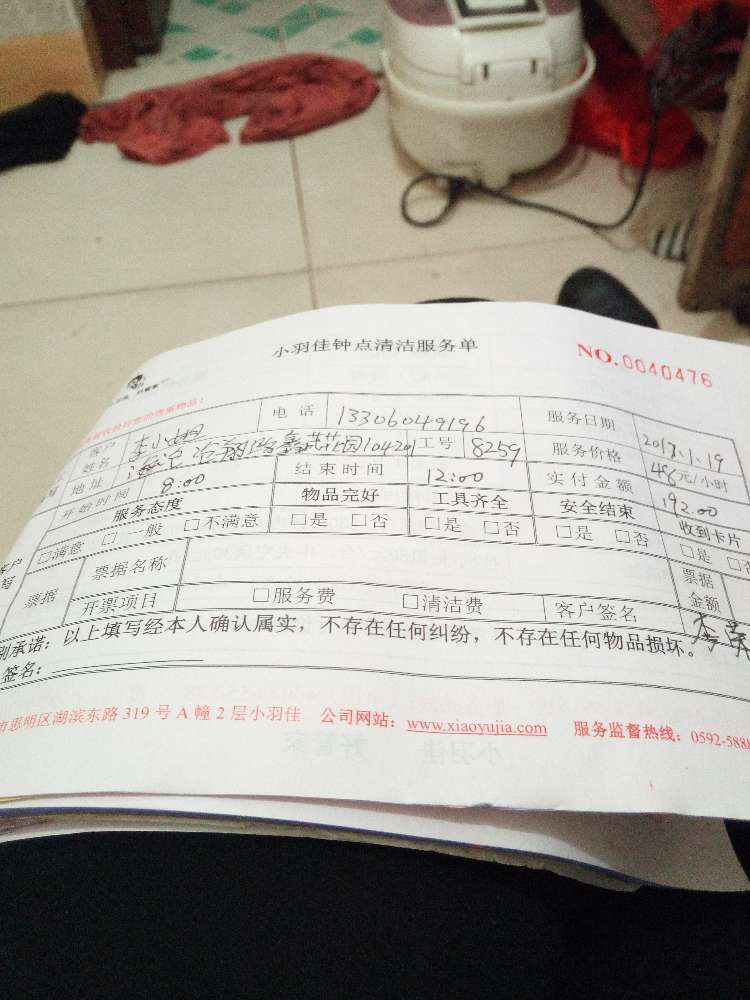 小羽佳钟点清洁服务单 NO.0040476
客户姓名 李小姐 电话 13306049196 服务日期 2017.1.19
地址 鑫花园10420 工号 8259 服务价格 48元/小时
开始时间 8:00 结束时间 12:00 实付金额 192.00
服务态度 物品完好 工具齐全 安全结束 收到卡片
□满意 □一般 □不满意 □是 □否 □是 □否 □是 □否 □是 □否
票据 票据名称 票据金额
开票项目 □服务费 □清洁费 客户签名 李
别承诺：以上填写经本人确认属实，不存在任何纠纷，不存在任何物品损坏。
签名：
市思明区湖滨东路319号A幢2层小羽佳 公司网站：www.xiaoyujia.com 服务监督热线：0592-5888